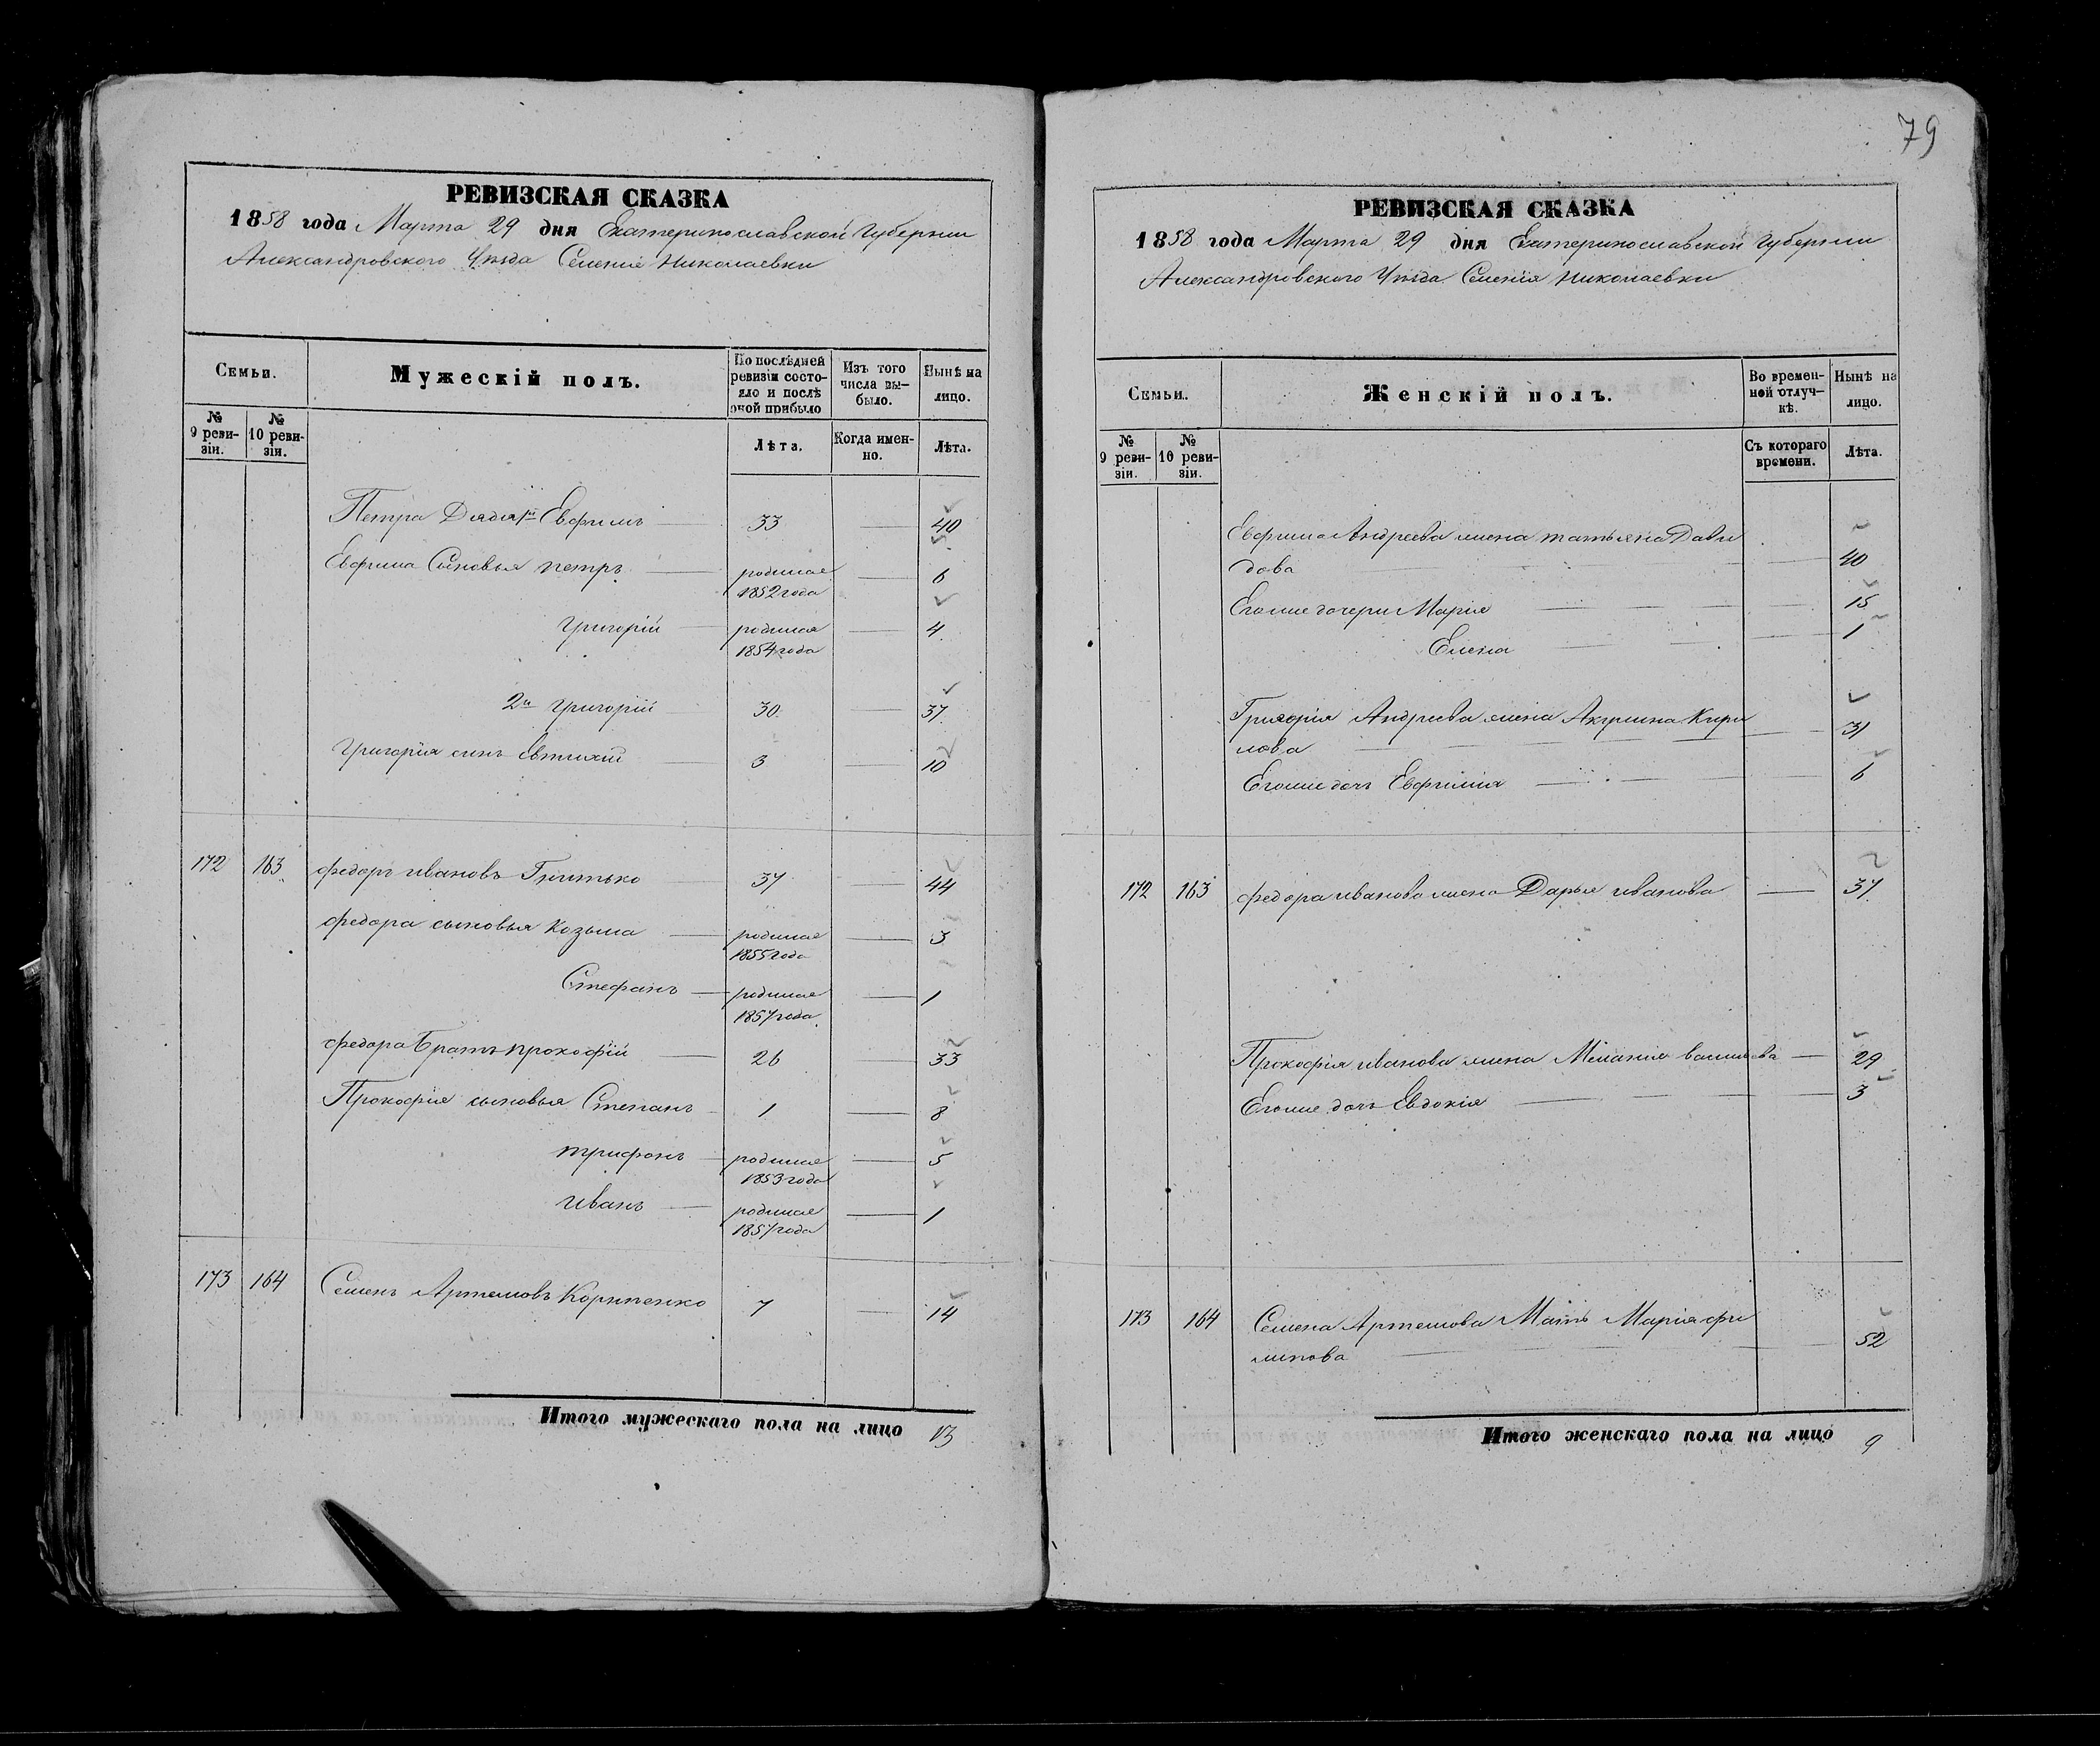 РЕВИЗСКАЯ СКАЗКА
1858 года Марта 29 дня Екатеринославской Губернии
Александровского Уѣзда Селенія Николаевки
Семьи.
Мужескій полъ.
По послѣдней ревизіи состояло и послѣ оной прибыло
Изъ того числа вы-было.
Нынѣ на лицо.
№ 9 реви-зіи.
№ 10 реви-зіи.
Лѣта.
Когда имен-но.
Лѣта.
Петра Дядья 1й Евфимъ 33 40
Евфима Сыновья петръ родился 1852 года 6
григорій родился 1854 года 4
2й григорій 30 37
григорія сынъ Евтихій 3 10
172 163 федоръ ивановъ 37 44
федора сыновья Козьма родился 1855 года 3
Стефанъ родился 1857 года 1
федора Братъ прокофій 26 33
Прокофія сыновья Степанъ 1 8
трифонъ родился 1853 года 5
иванъ родился 1857 года 1
173 164 Семенъ Артемовъ 7 14
Итого мужескаго пола на лицо 13
79
РЕВИЗСКАЯ СКАЗКА
1858 года Марта 29 дня Екатеринославской Губернии
Александровского Уѣзда Селенія Николаевки
Семьи.
Женскій полъ.
Во времен-ной отлуч-кѣ.
Нынѣ на лицо.
№ 9 реви-зіи.
№ 10 реви-зіи.
Съ котораго времени.
Лѣта.
Евфима Андреева жена татьяна Дави
дова 40
Егоже дочери Марія 15
Елена 1
Григорія Андреева жена Акулина Кири
лова 31
Егоже дочь Евфимія 6
172 163 федора иванова жена Дарья иванова 37
Прокофія иванова жена Меланія васильева 29
Егоже дочь Евдокія 3
173 164 Семена Артемова Мать Марія фи
липова 52
Итого женскаго пола на лицо 9